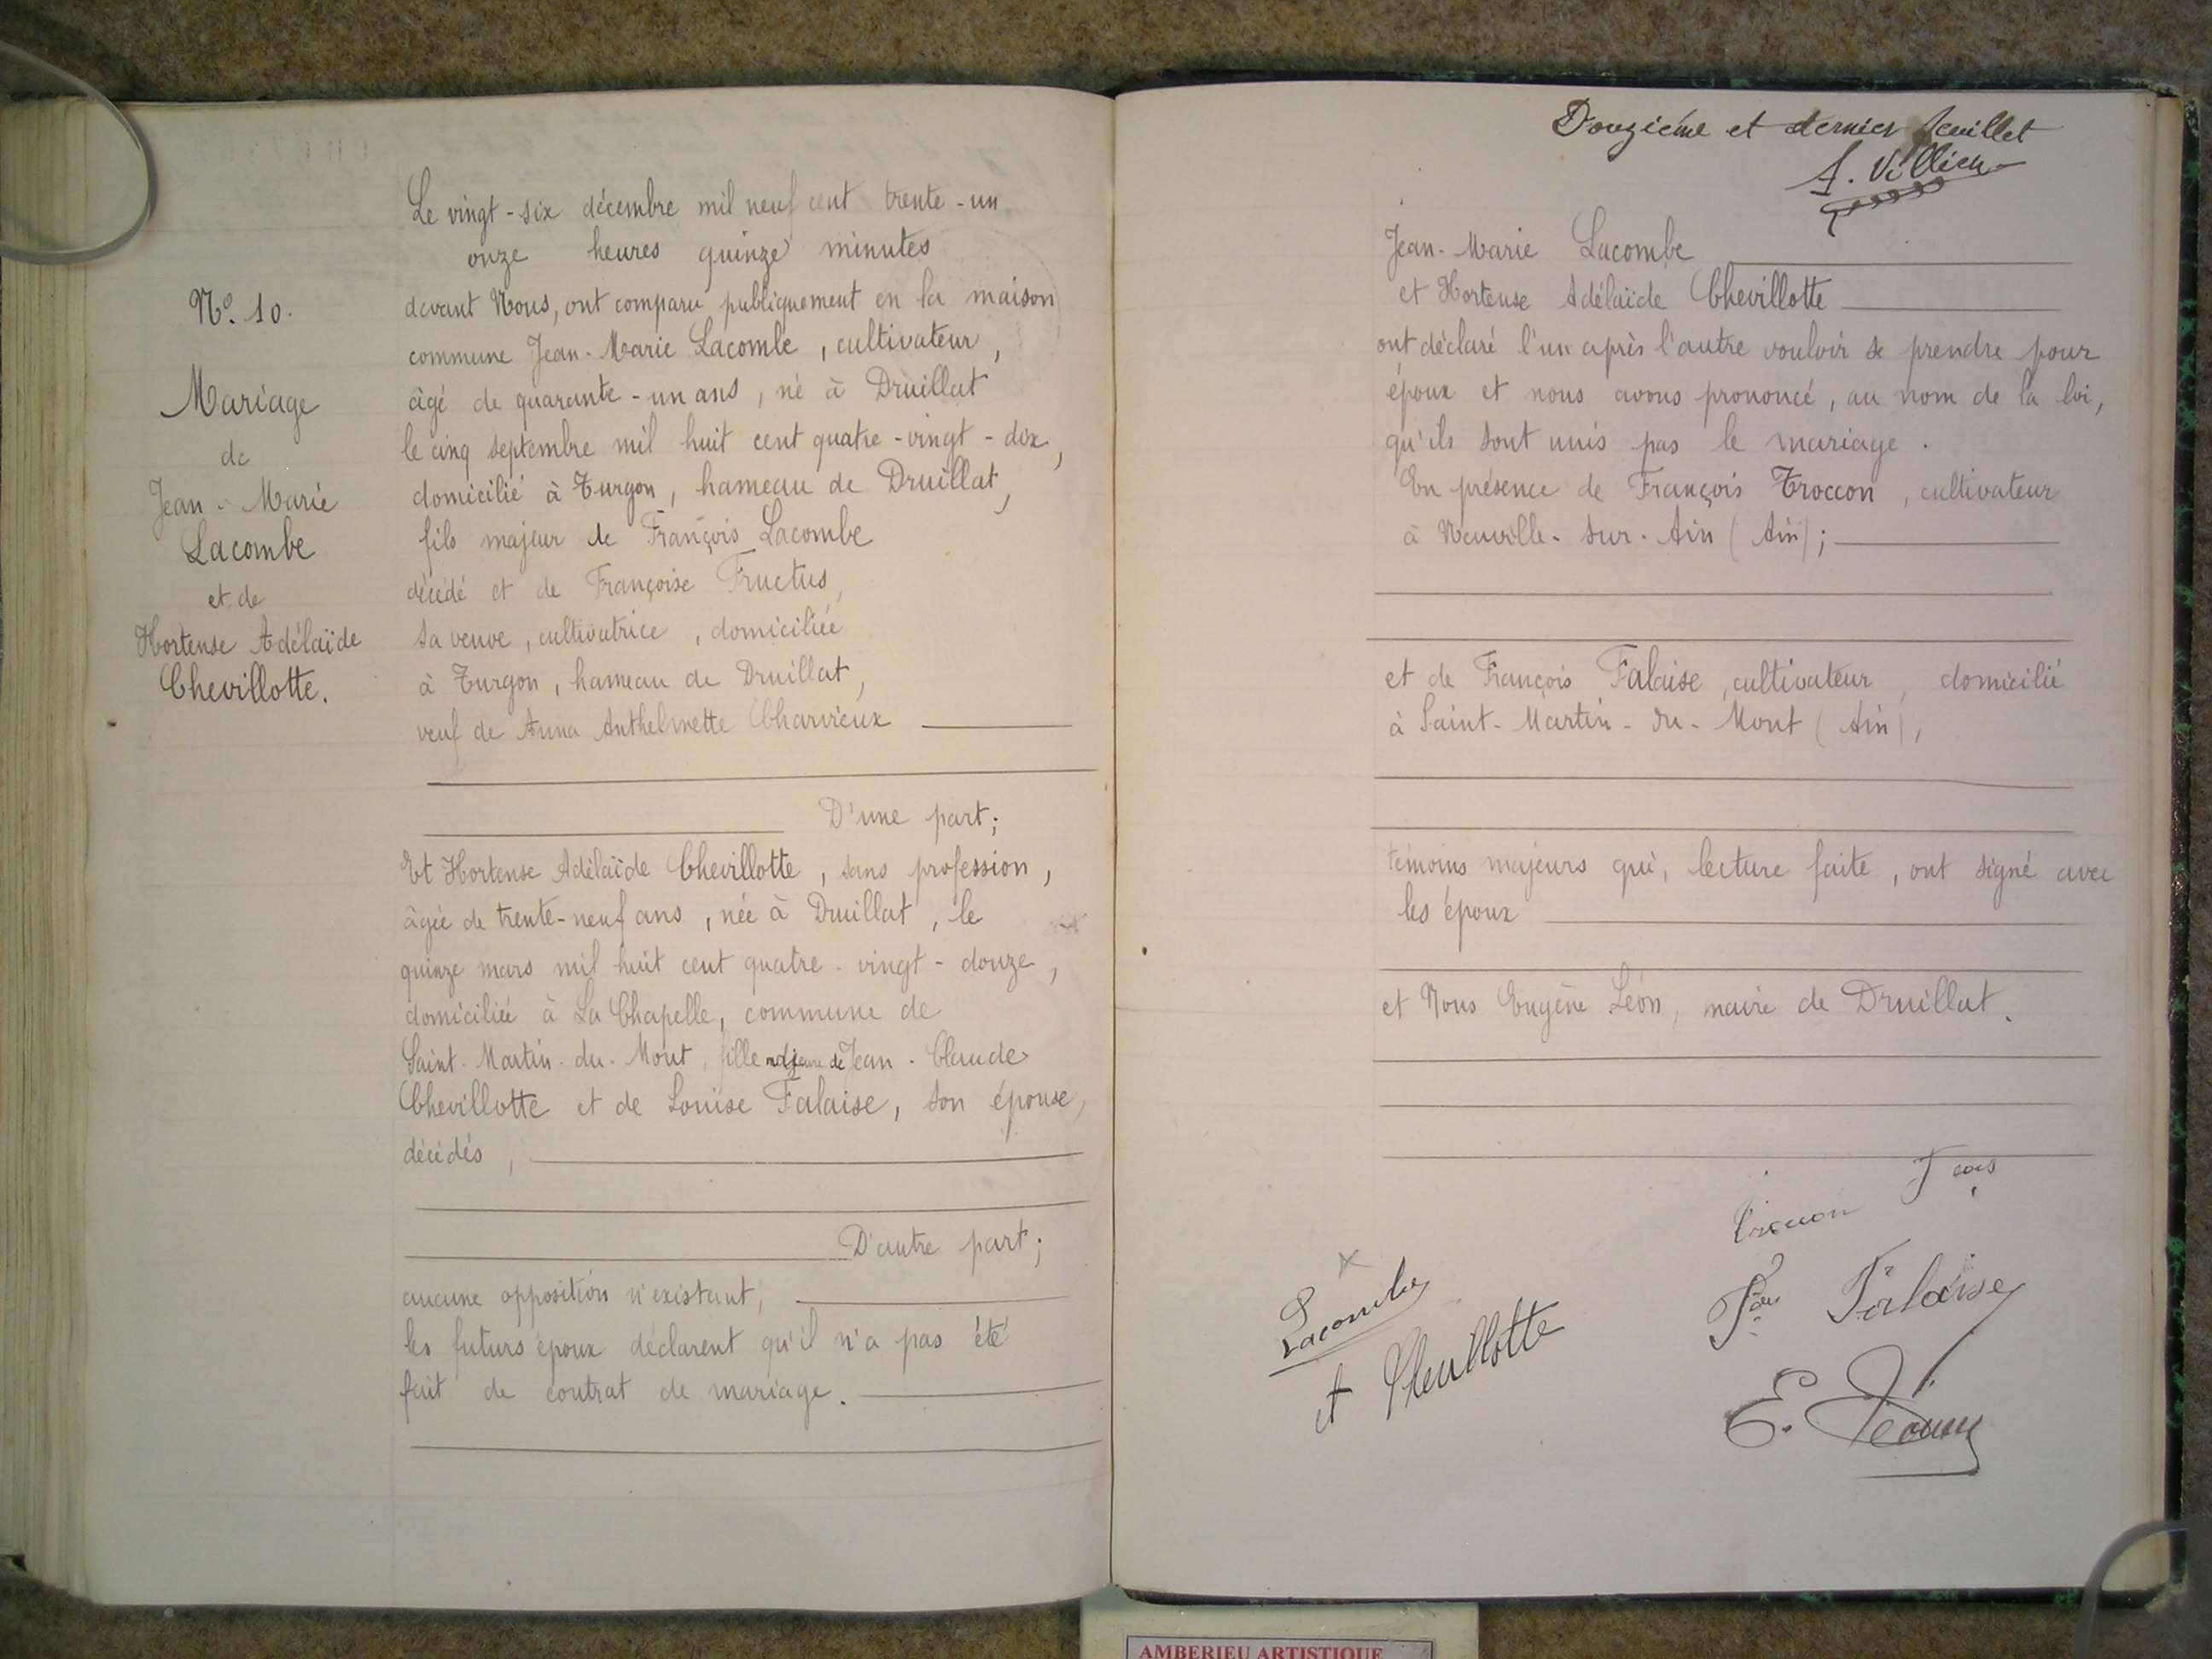 N° 10.
Mariage
de
Jean-Marie
Lacombe
et de
Hortense Adélaïde
Chevillotte.
Le vingt-six décembre mil neuf cent trente-un
onze heures quinze minutes
devant Nous, ont comparu publiquement en la maison
commune Jean-Marie Lacombe, cultivateur,
âgé de quarante-un ans, né à Druillat
le cinq septembre mil huit cent quatre-vingt-dix,
domicilié à Turgon, hameau de Druillat,
fils majeur de François Lacombe
décédé et de Françoise Fructus,
sa veuve, cultivatrice, domiciliée
à Turgon, hameau de Druillat,
veuf de Anna Anthelmette Charvieux
D'une part;
Et Hortense Adélaïde Chevillotte, sans profession,
âgée de trente-neuf ans, née à Druillat, le
quinze mars mil huit cent quatre-vingt-douze,
domiciliée à La Chapelle, commune de
Saint-Martin-du-Mont, fille majeure de Jean-Claude
Chevillotte et de Louise Falaise, son épouse,
décédés,
D'autre part;
aucune opposition n'existant,
les futurs époux déclarent qu'il n'a pas été
fait de contrat de mariage.
Douzième et dernier feuillet
A. Villien
Jean-Marie Lacombe
et Hortense Adélaïde Chevillotte
ont déclaré l'un après l'autre vouloir se prendre pour
époux et nous avons prononcé, au nom de la loi,
qu'ils sont unis pas le mariage.
En présence de François Troccon, cultivateur
à Neuville-sur-Ain (Ain);
et de François Falaise, cultivateur, domicilié
à Saint-Martin-du-Mont (Ain),
témoins majeurs qui, lecture faite, ont signé avec
les époux
et Nous Eugène Léon, maire de Druillat.
Troccon Fcois
Lacombe
Fois Falaise
A Chevillotte
E. Léon
AMBERIEU ARTISTIQUE